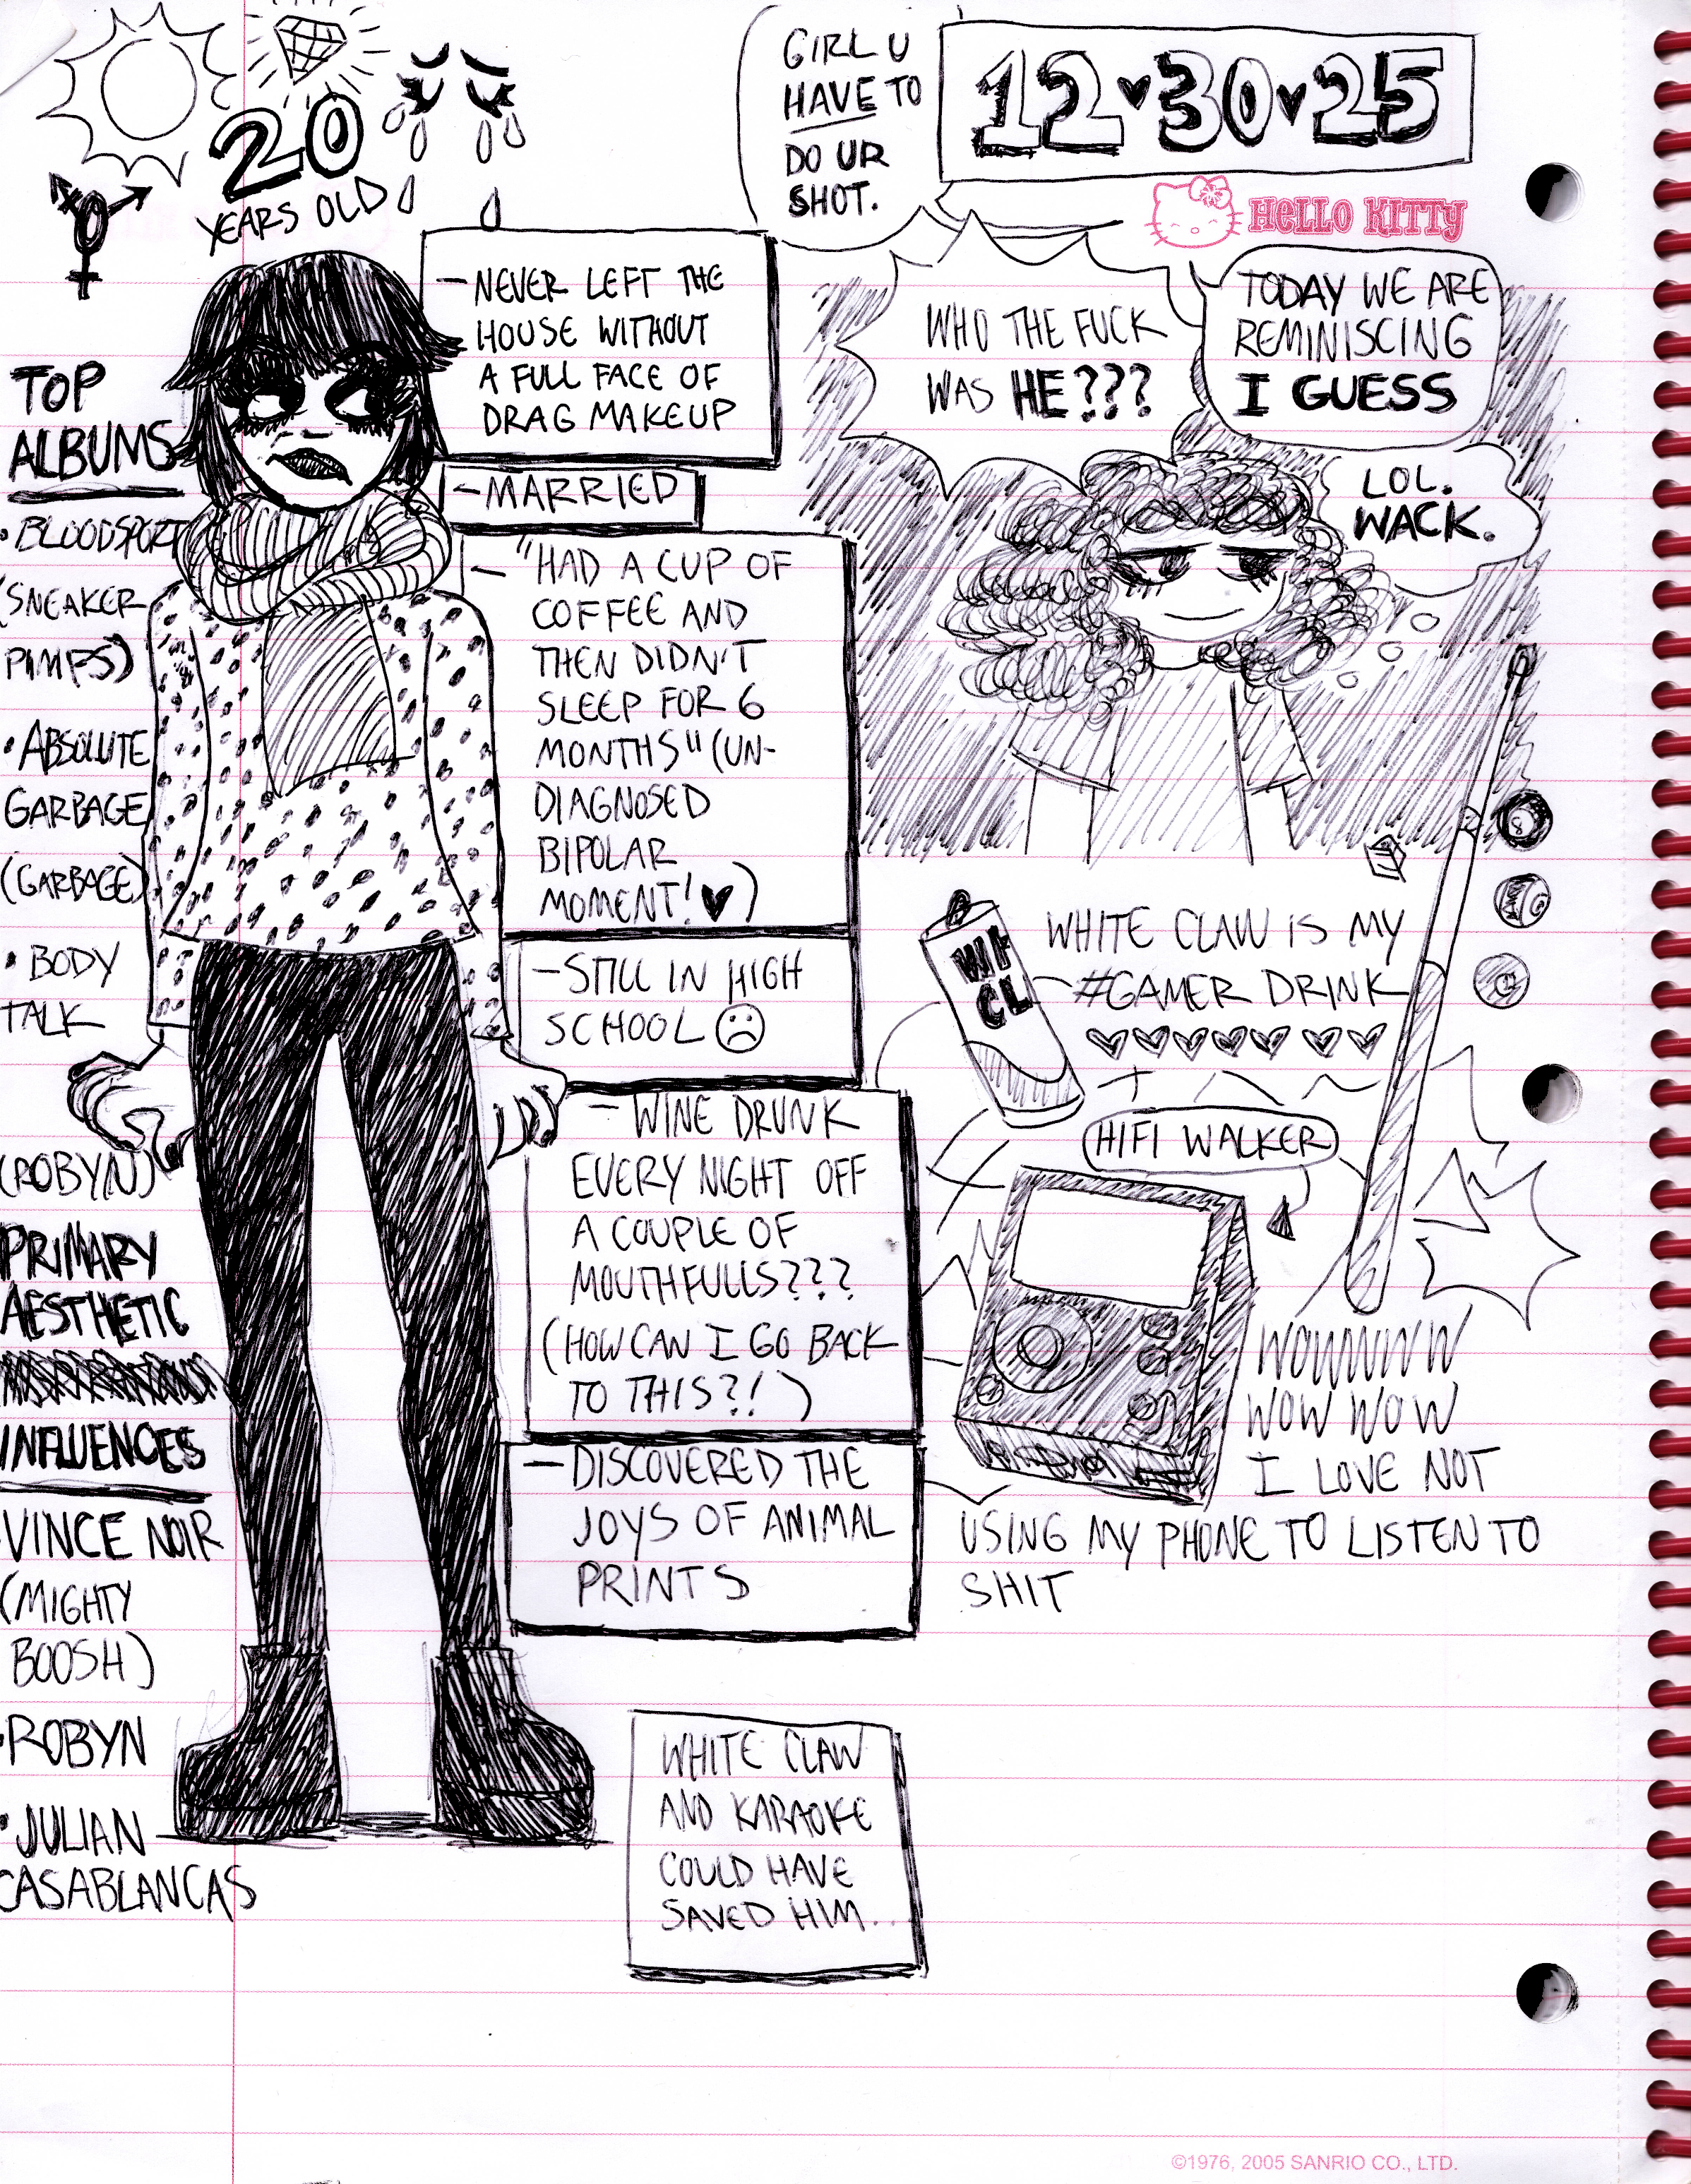 20
YEARS OLD
GIRL U
HAVE TO
DO UR
SHOT.
12♥30♥25
HELLO KITTY
TODAY WE ARE
REMINISCING
I GUESS
WHO THE FUCK
WAS HE???
LOL.
WACK.
TOP
ALBUMS
• BLOODSPORT
(SNEAKER
PIMPS)
• ABSOLUTE
GARBAGE
(GARBAGE)
• BODY
TALK
(ROBYN)
PRIMARY
AESTHETIC
INFLUENCES
VINCE NOIR
(MIGHTY
BOOSH)
• ROBYN
• JULIAN
CASABLANCAS
— NEVER LEFT THE
HOUSE WITHOUT
A FULL FACE OF
DRAG MAKEUP
— MARRIED
— "HAD A CUP OF
COFFEE AND
THEN DIDN'T
SLEEP FOR 6
MONTHS" (UN-
DIAGNOSED
BIPOLAR
MOMENT! ♥)
— STILL IN HIGH
SCHOOL ☹
— WINE DRUNK
EVERY NIGHT OFF
A COUPLE OF
MOUTHFULLS???
(HOW CAN I GO BACK
TO THIS?!)
— DISCOVERED THE
JOYS OF ANIMAL
PRINTS
WHITE CLAW
AND KARAOKE
COULD HAVE
SAVED HIM...
WH
CL
WHITE CLAW IS MY
#GAMER DRINK
♥♥♥♥♥♥♥
8
HIFI WALKER
WOWWWW
WOW WOW
I LOVE NOT
USING MY PHONE TO LISTEN TO
SHIT
©1976, 2005 SANRIO CO., LTD.